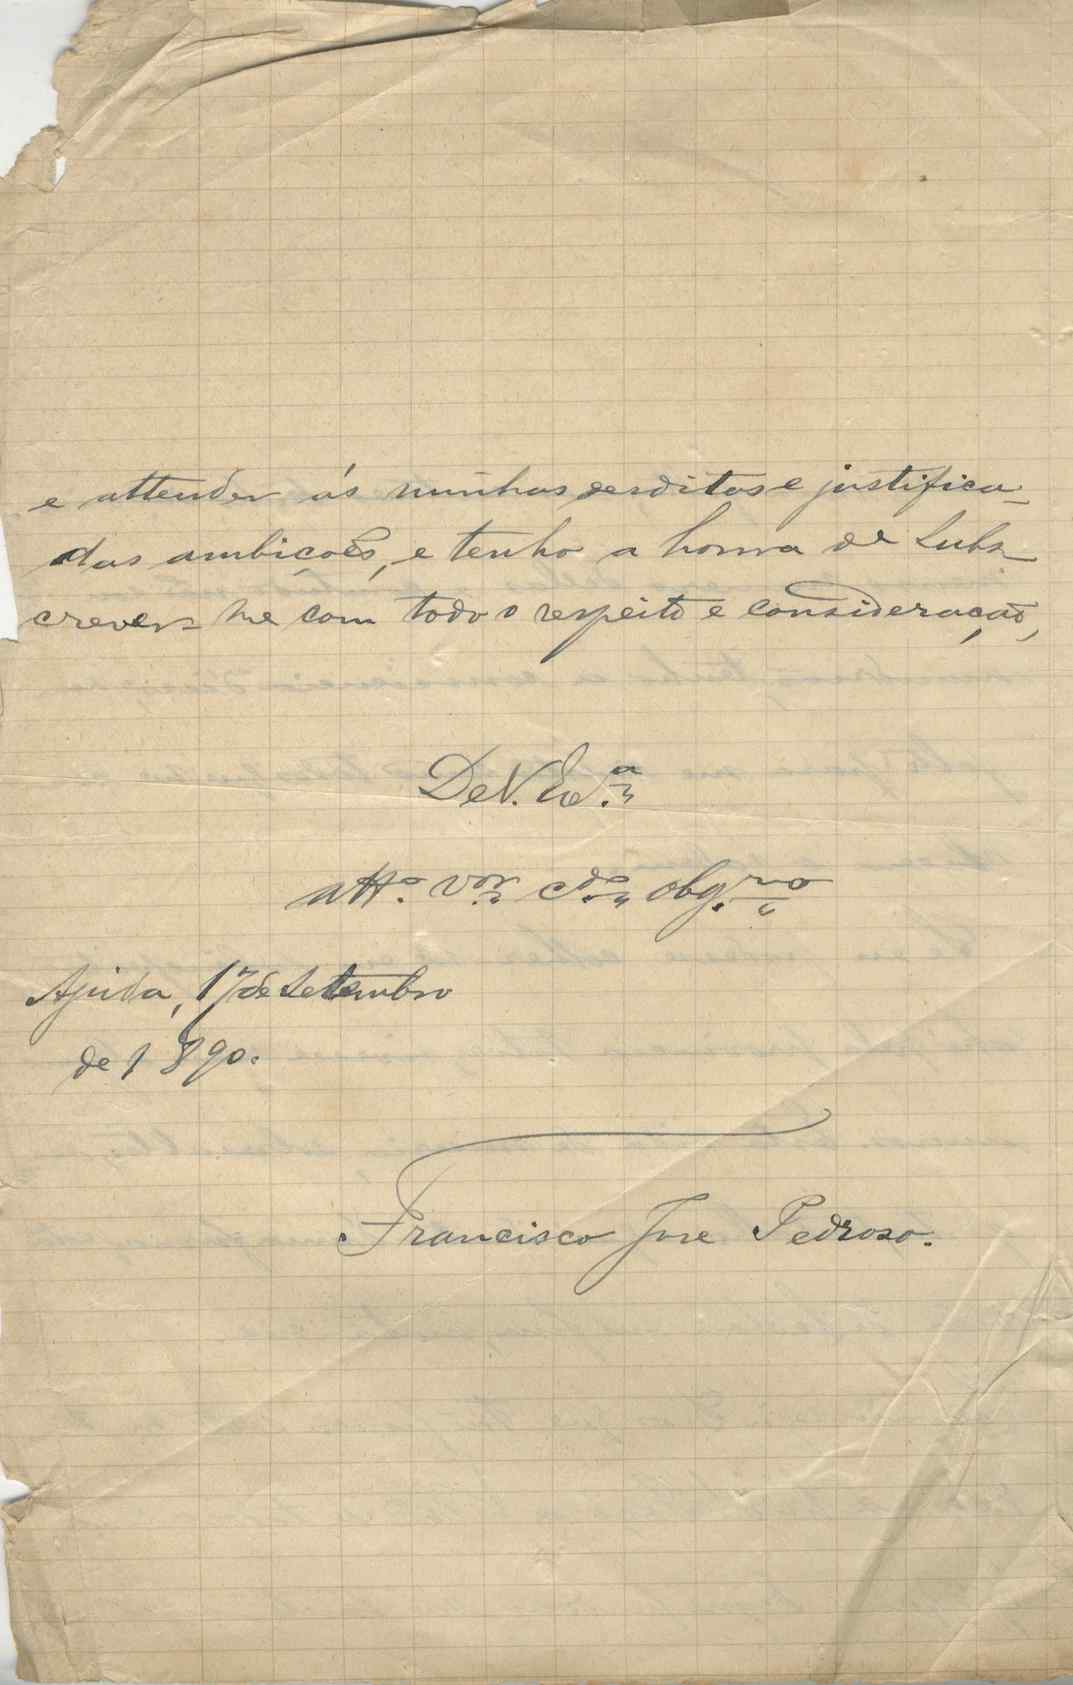 e attender ás minhas desditas e justifica-
das ambiçoes, e tenho a honra de Subs-
crever-me com todo o respeito e consideração,
De V. Ex.ª
att.º v.or c.do obg.mo
Ajuda, 17 de Setembro
de 1890.
Francisco José Pedroso.